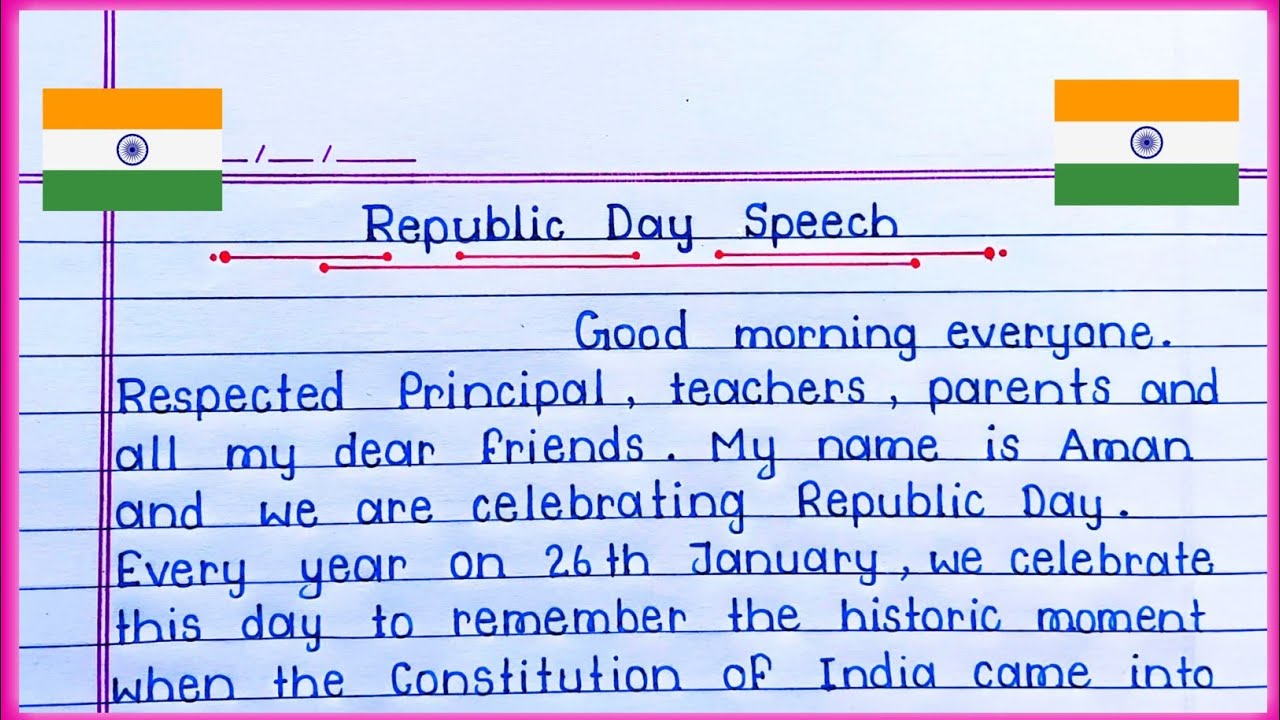 __/__/____
Republic Day Speech
Good morning everyone.
Respected Principal, teachers, parents and
all my dear friends. My name is Aman
and we are celebrating Republic Day.
Every year on 26th January, we celebrate
this day to remember the historic moment
when the Constitution of India came into